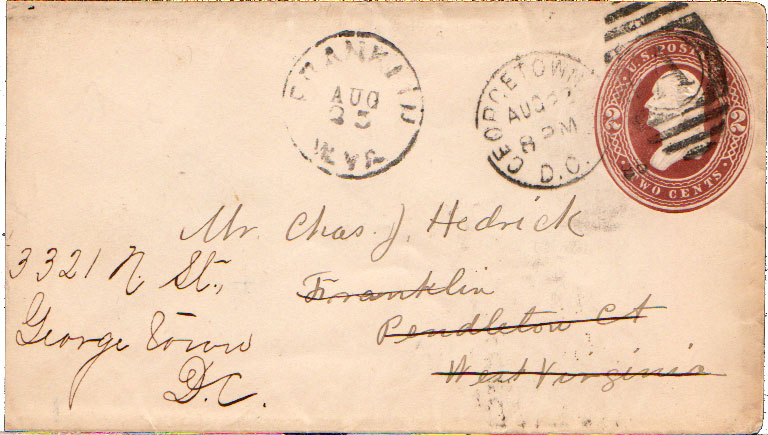 FRANKLIN
AUG
23
W.VA.
GEORGETOWN
AUG
8 PM
D.C.
U.S. POSTAGE
2 2
TWO CENTS
Mr. Chas. J. Hedrick
Franklin
Pendleton Ct
West Virginia
3321 N. St.,
George Town
D.C.